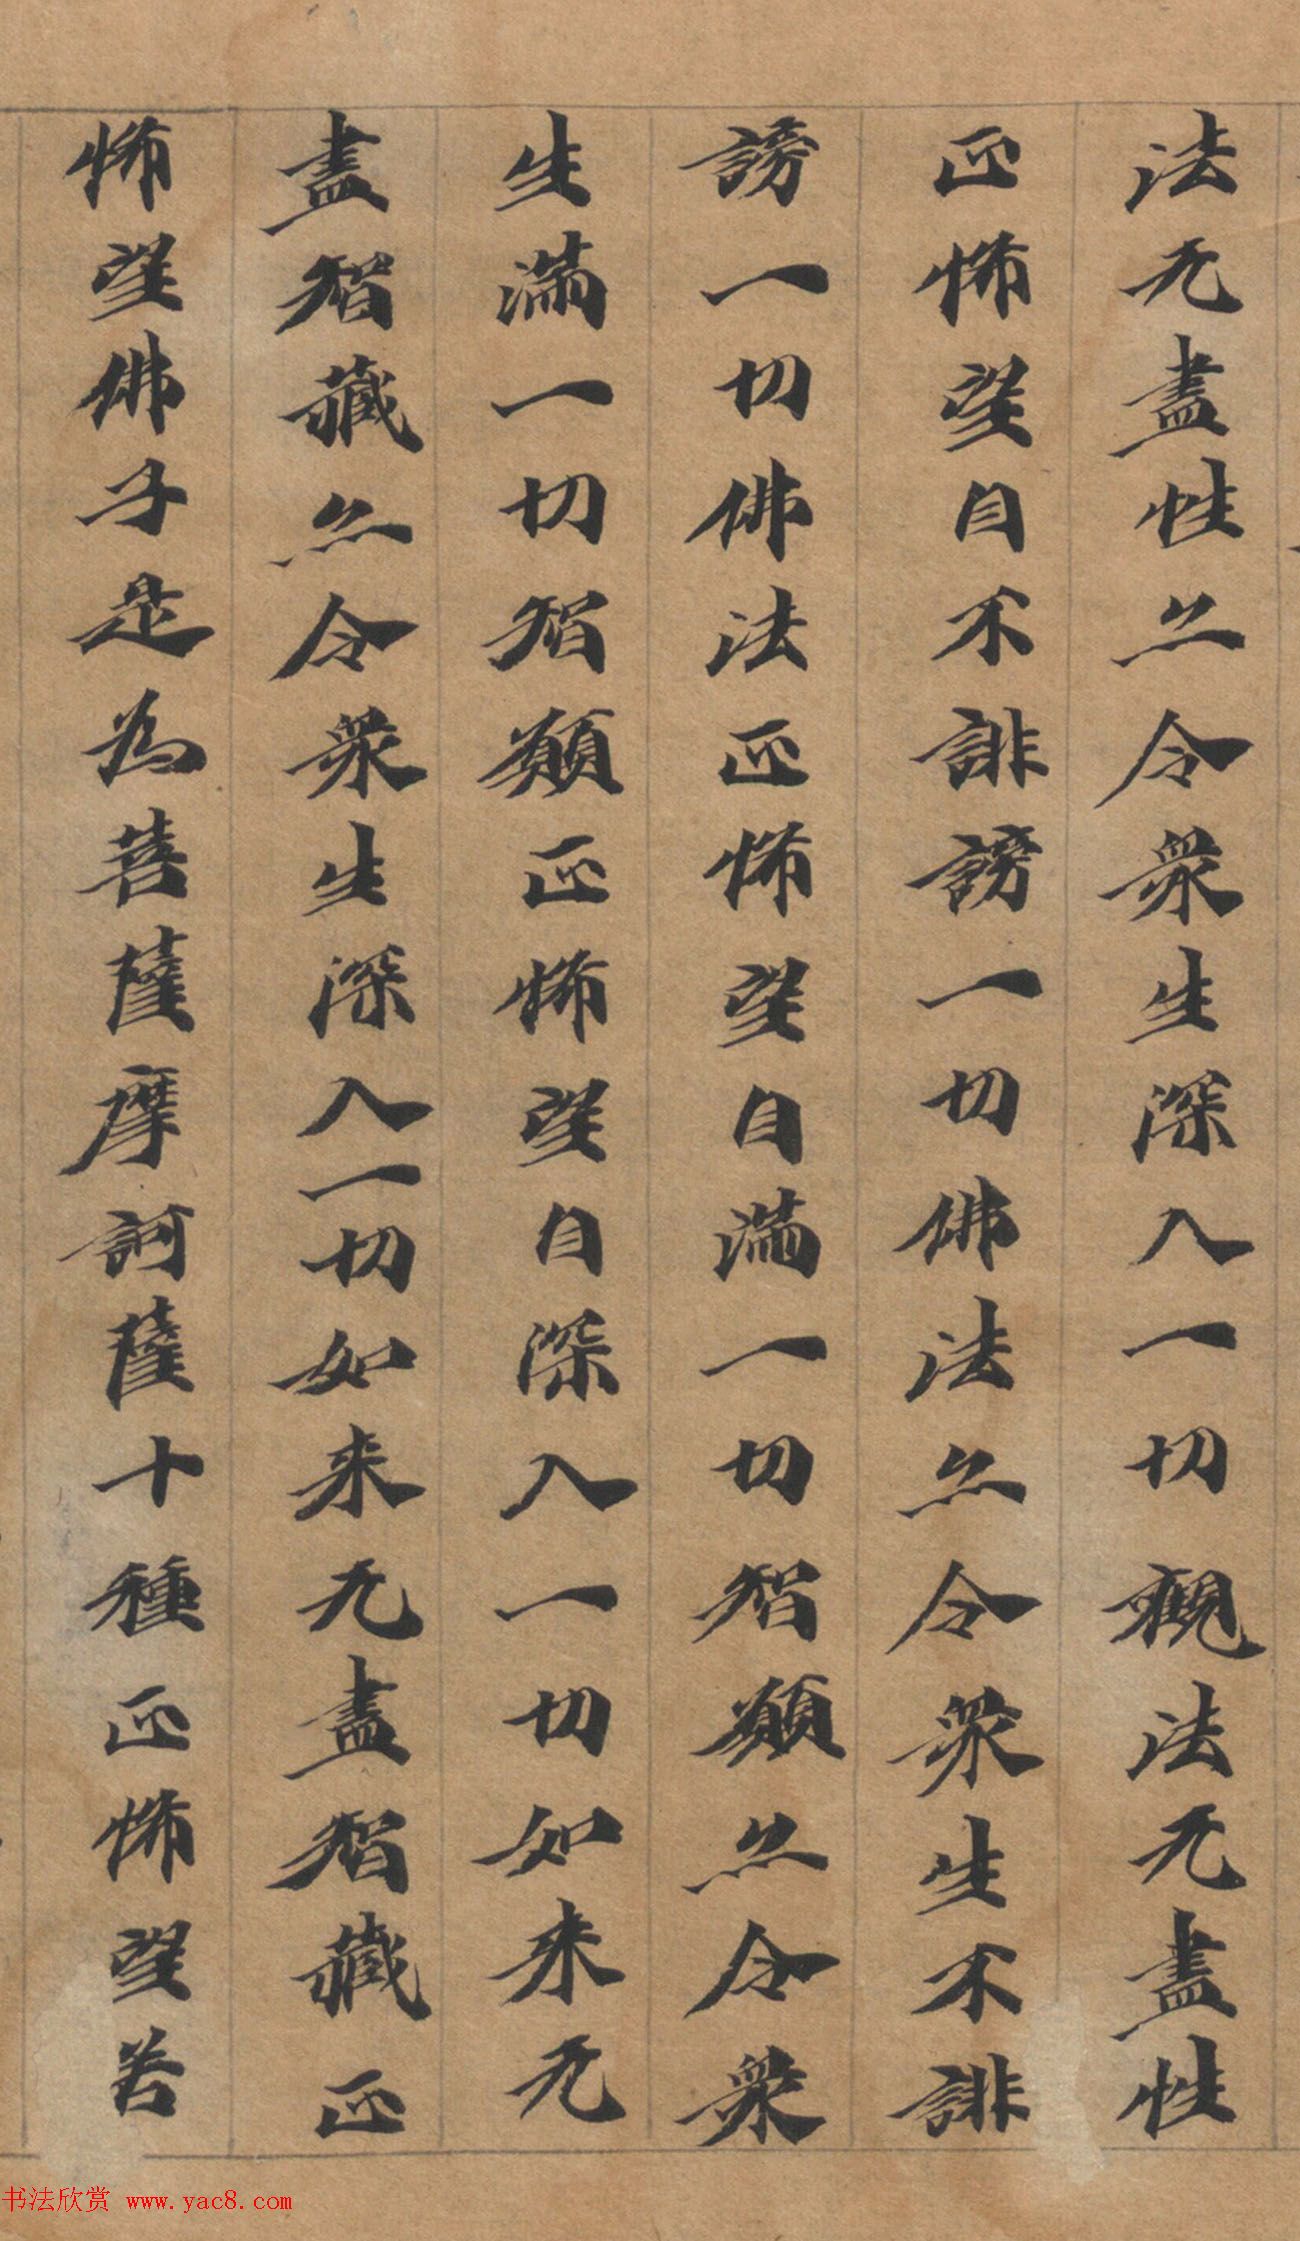 法无盡性亦令衆生深入一切觀法无盡性
正悕望自不誹謗一切佛法亦令衆生不誹
謗一切佛法正悕望自滿一切智願亦令衆
生滿一切智願正悕望自深入一切如来无
盡智藏亦令衆生深入一切如来无盡智藏正
悕望佛子是為菩薩摩訶薩十種正悕望若
书法欣赏 www.yac8.com